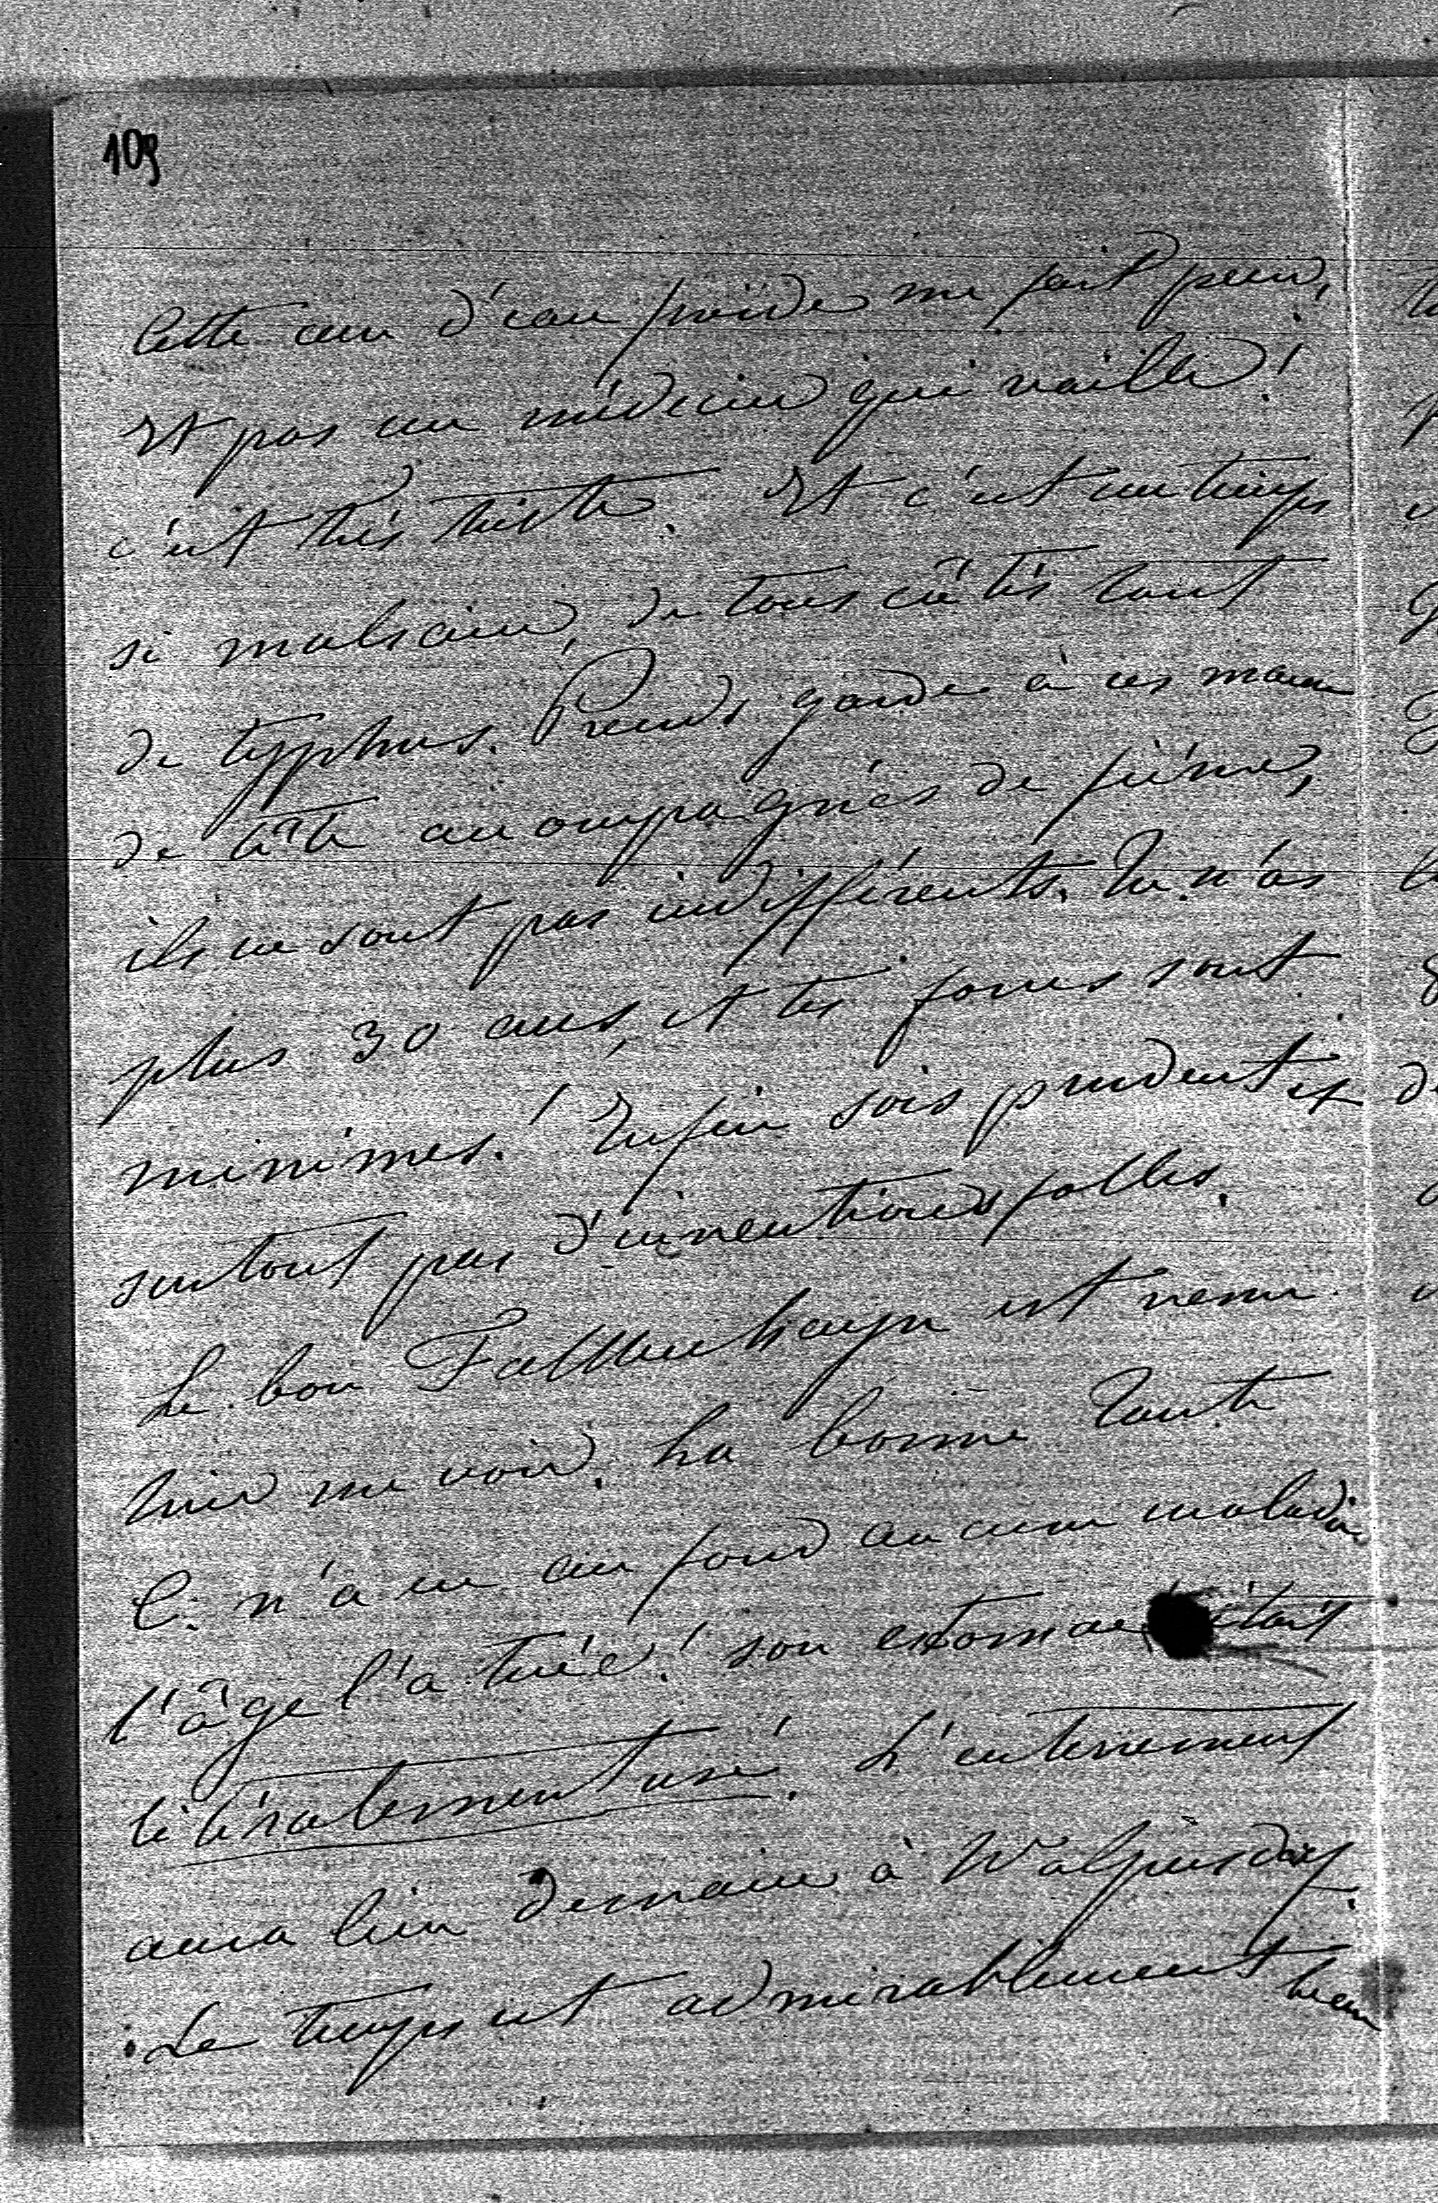 109
Cette cure d'eau froide me fait peur,
Et pas un médecin qui vaille!
c'est très triste. Et c'est un temps
si malsain, de tous côtés tant
de typhus. Prends garde à ces maux
de tête accompagnés de fièvre,
ils ne sont pas indifférents. Tu n'as
plus 30 ans, et tes forces sont
minimes! Enfin sois prudent et
surtout pas d'inventions folles.
Le bon Falkenhayn est venu
hier me voir. La bonne Tante
C. n'a eu au fond aucune maladie
l'âge l'a tuée! son estomac était
litéralement usé. L'enterrement
aura lieu demain à
Le temps est admirablement beau